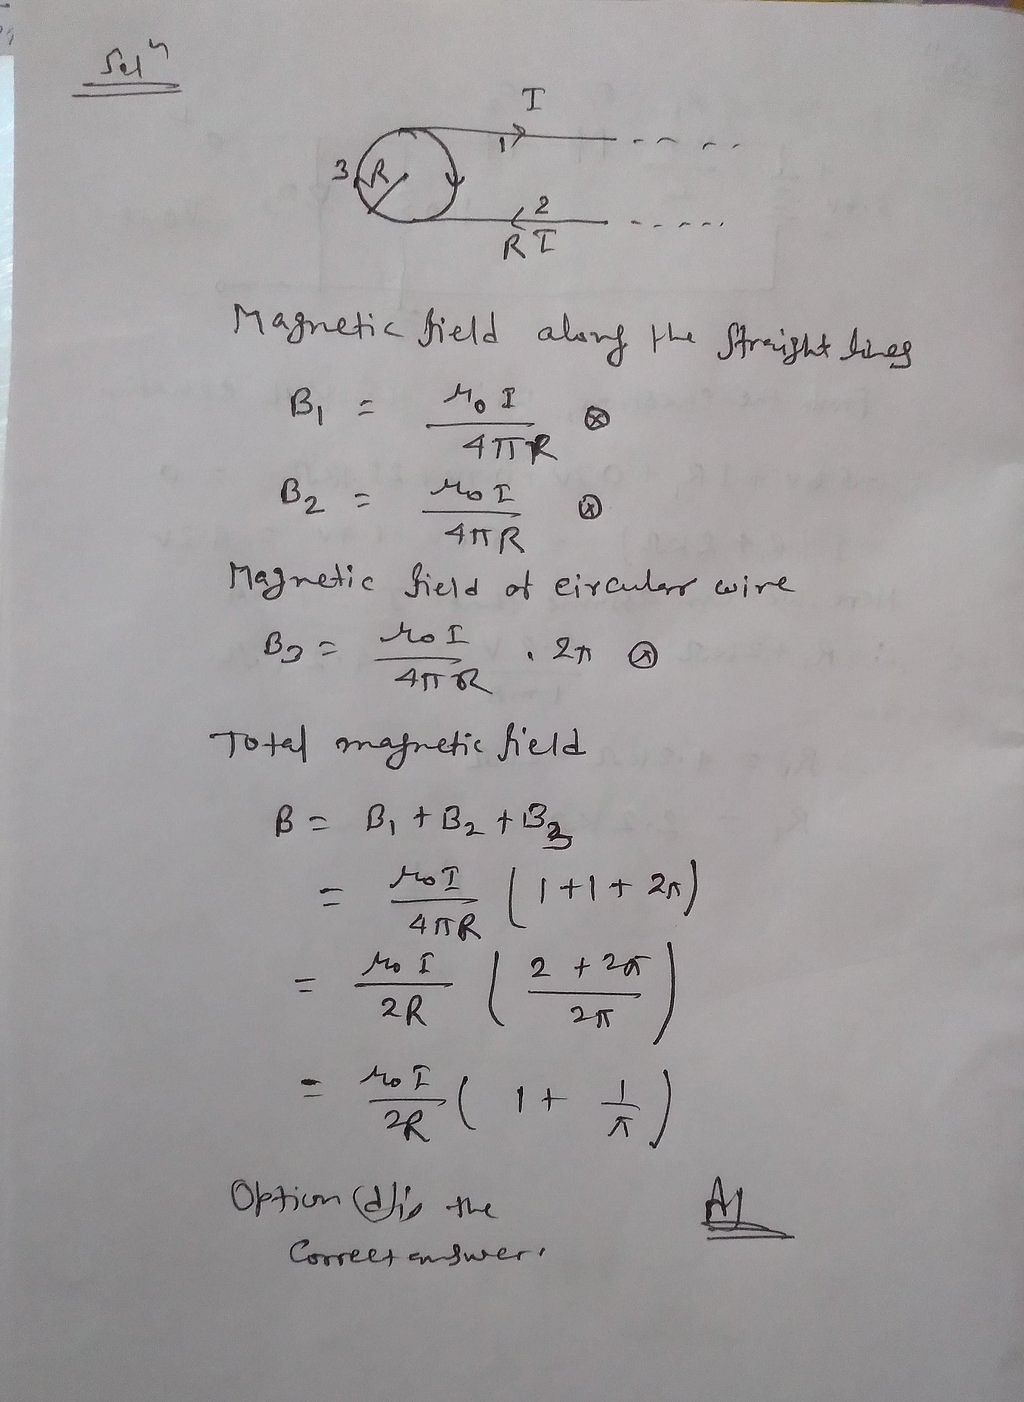 Solⁿ
I
1
3 R
2
R I
Magnetic field along the straight lines
B₁ = μ₀ I / 4πR ⊗
B₂ = μ₀ I / 4πR ⊗
Magnetic field of circular wire
B₃ = μ₀ I / 4πR . 2π ⊗
Total magnetic field
B = B₁ + B₂ + B₃
= μ₀ I / 4πR (1+1+2π)
= μ₀ I / 2R (2 + 2π / 2π)
= μ₀ I / 2R (1 + 1/π)
Option (d) is the
Correct answer.